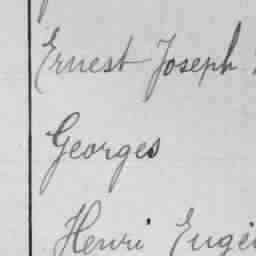 Ernest Joseph
Georges
Henri